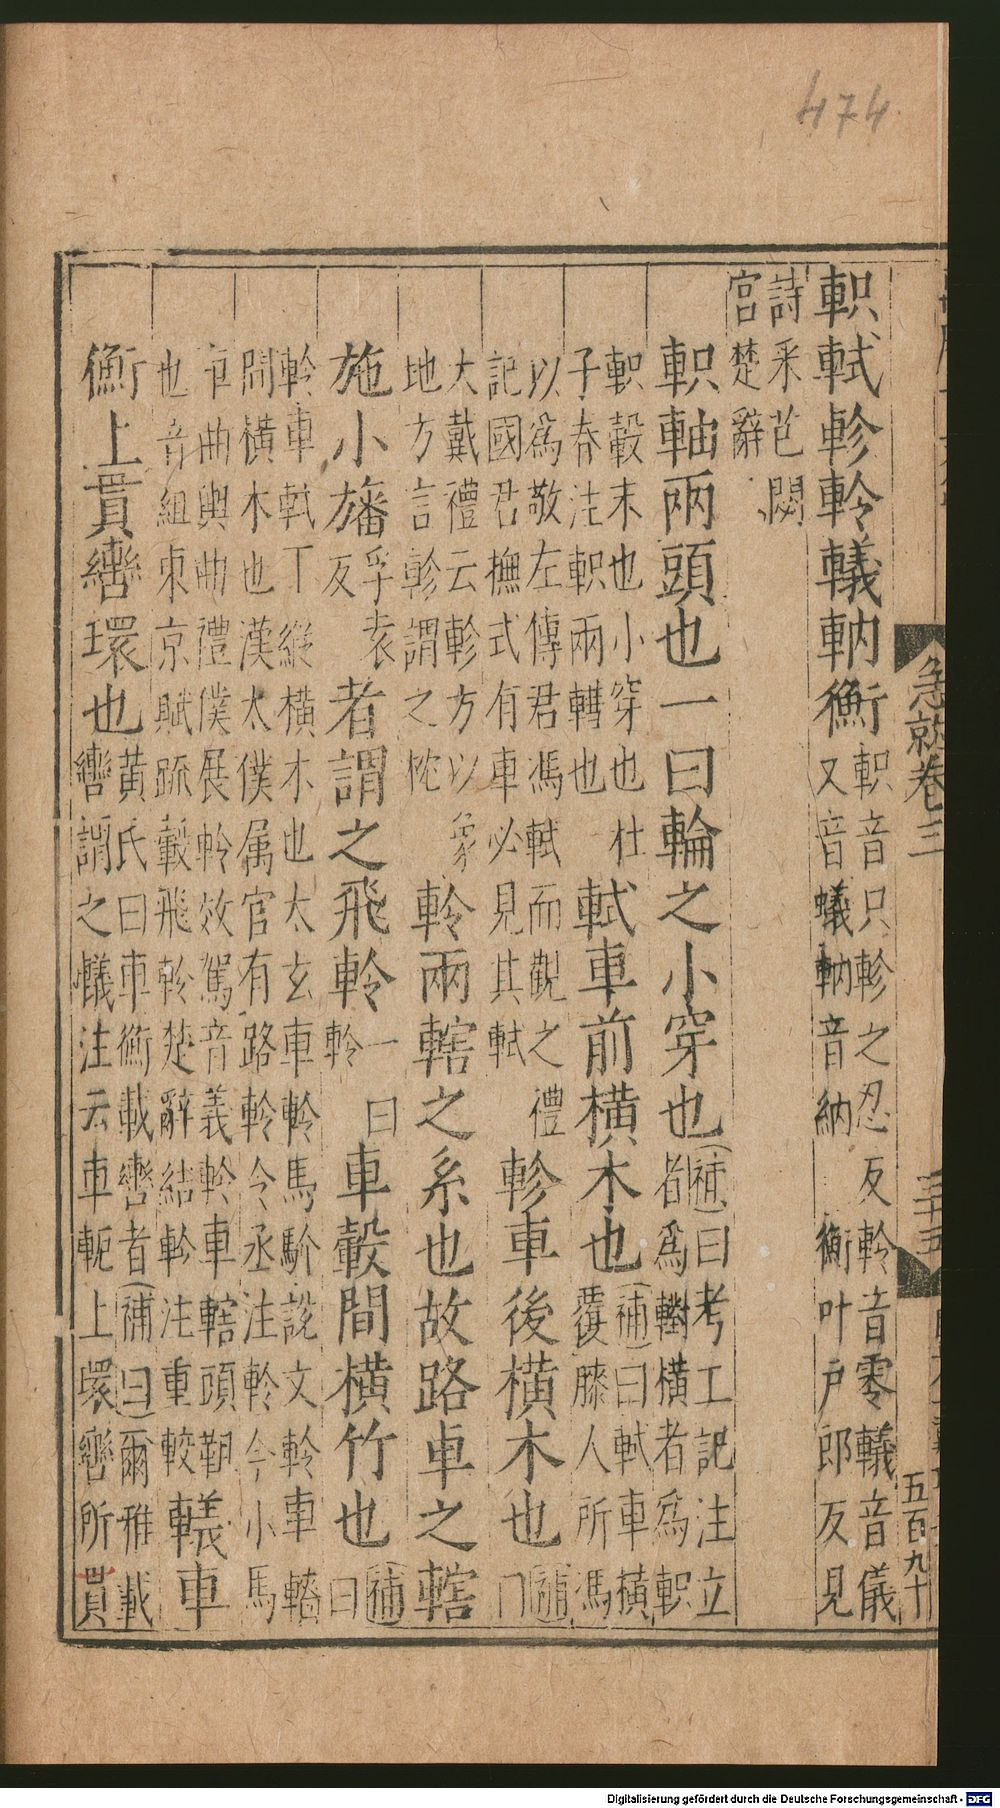 474
急就卷三
三十五
五百九十
軹軾軫軨轙軜衡軹音只軫之忍反軨音零轙音儀
又音蟻軜音納 衡叶戶郎反見
詩采芑閟
宮楚辭
軹軸兩頭也一曰輪之小穿也(補)曰考工記注立
者為轛橫者為軹
軹轂末也小穿也杜
子春注軹兩轊也
軾車前橫木也(補)曰軾車橫
覆膝人所馮
以為敬左傳君馮軾而觀之禮
記國君撫式有車必見其軾
軫車後橫木也(補)
大戴禮云軫方以象
地方言軫謂之枕
軨兩轄之系也故路車之轄
施小旛孚袁
反者謂之飛軨一曰
軨車轂間橫竹也(補)
曰
軨車軾丁縱橫木也太玄車軨馬馻說文軨車轖
間橫木也漢太僕属官有路軨令丞注軨今小馬
車曲輿曲禮僕展軨效駕音義軨車轄頭靼
也音組東京賦疏轂飛軨楚辭結軨注重較
轙車
衡上貫轡環也黃氏曰車衡載轡者(補曰)爾雅載
轡謂之轙注云車軛上環轡所貫
Digitalisierung gefördert durch die Deutsche Forschungsgemeinschaft - DFG